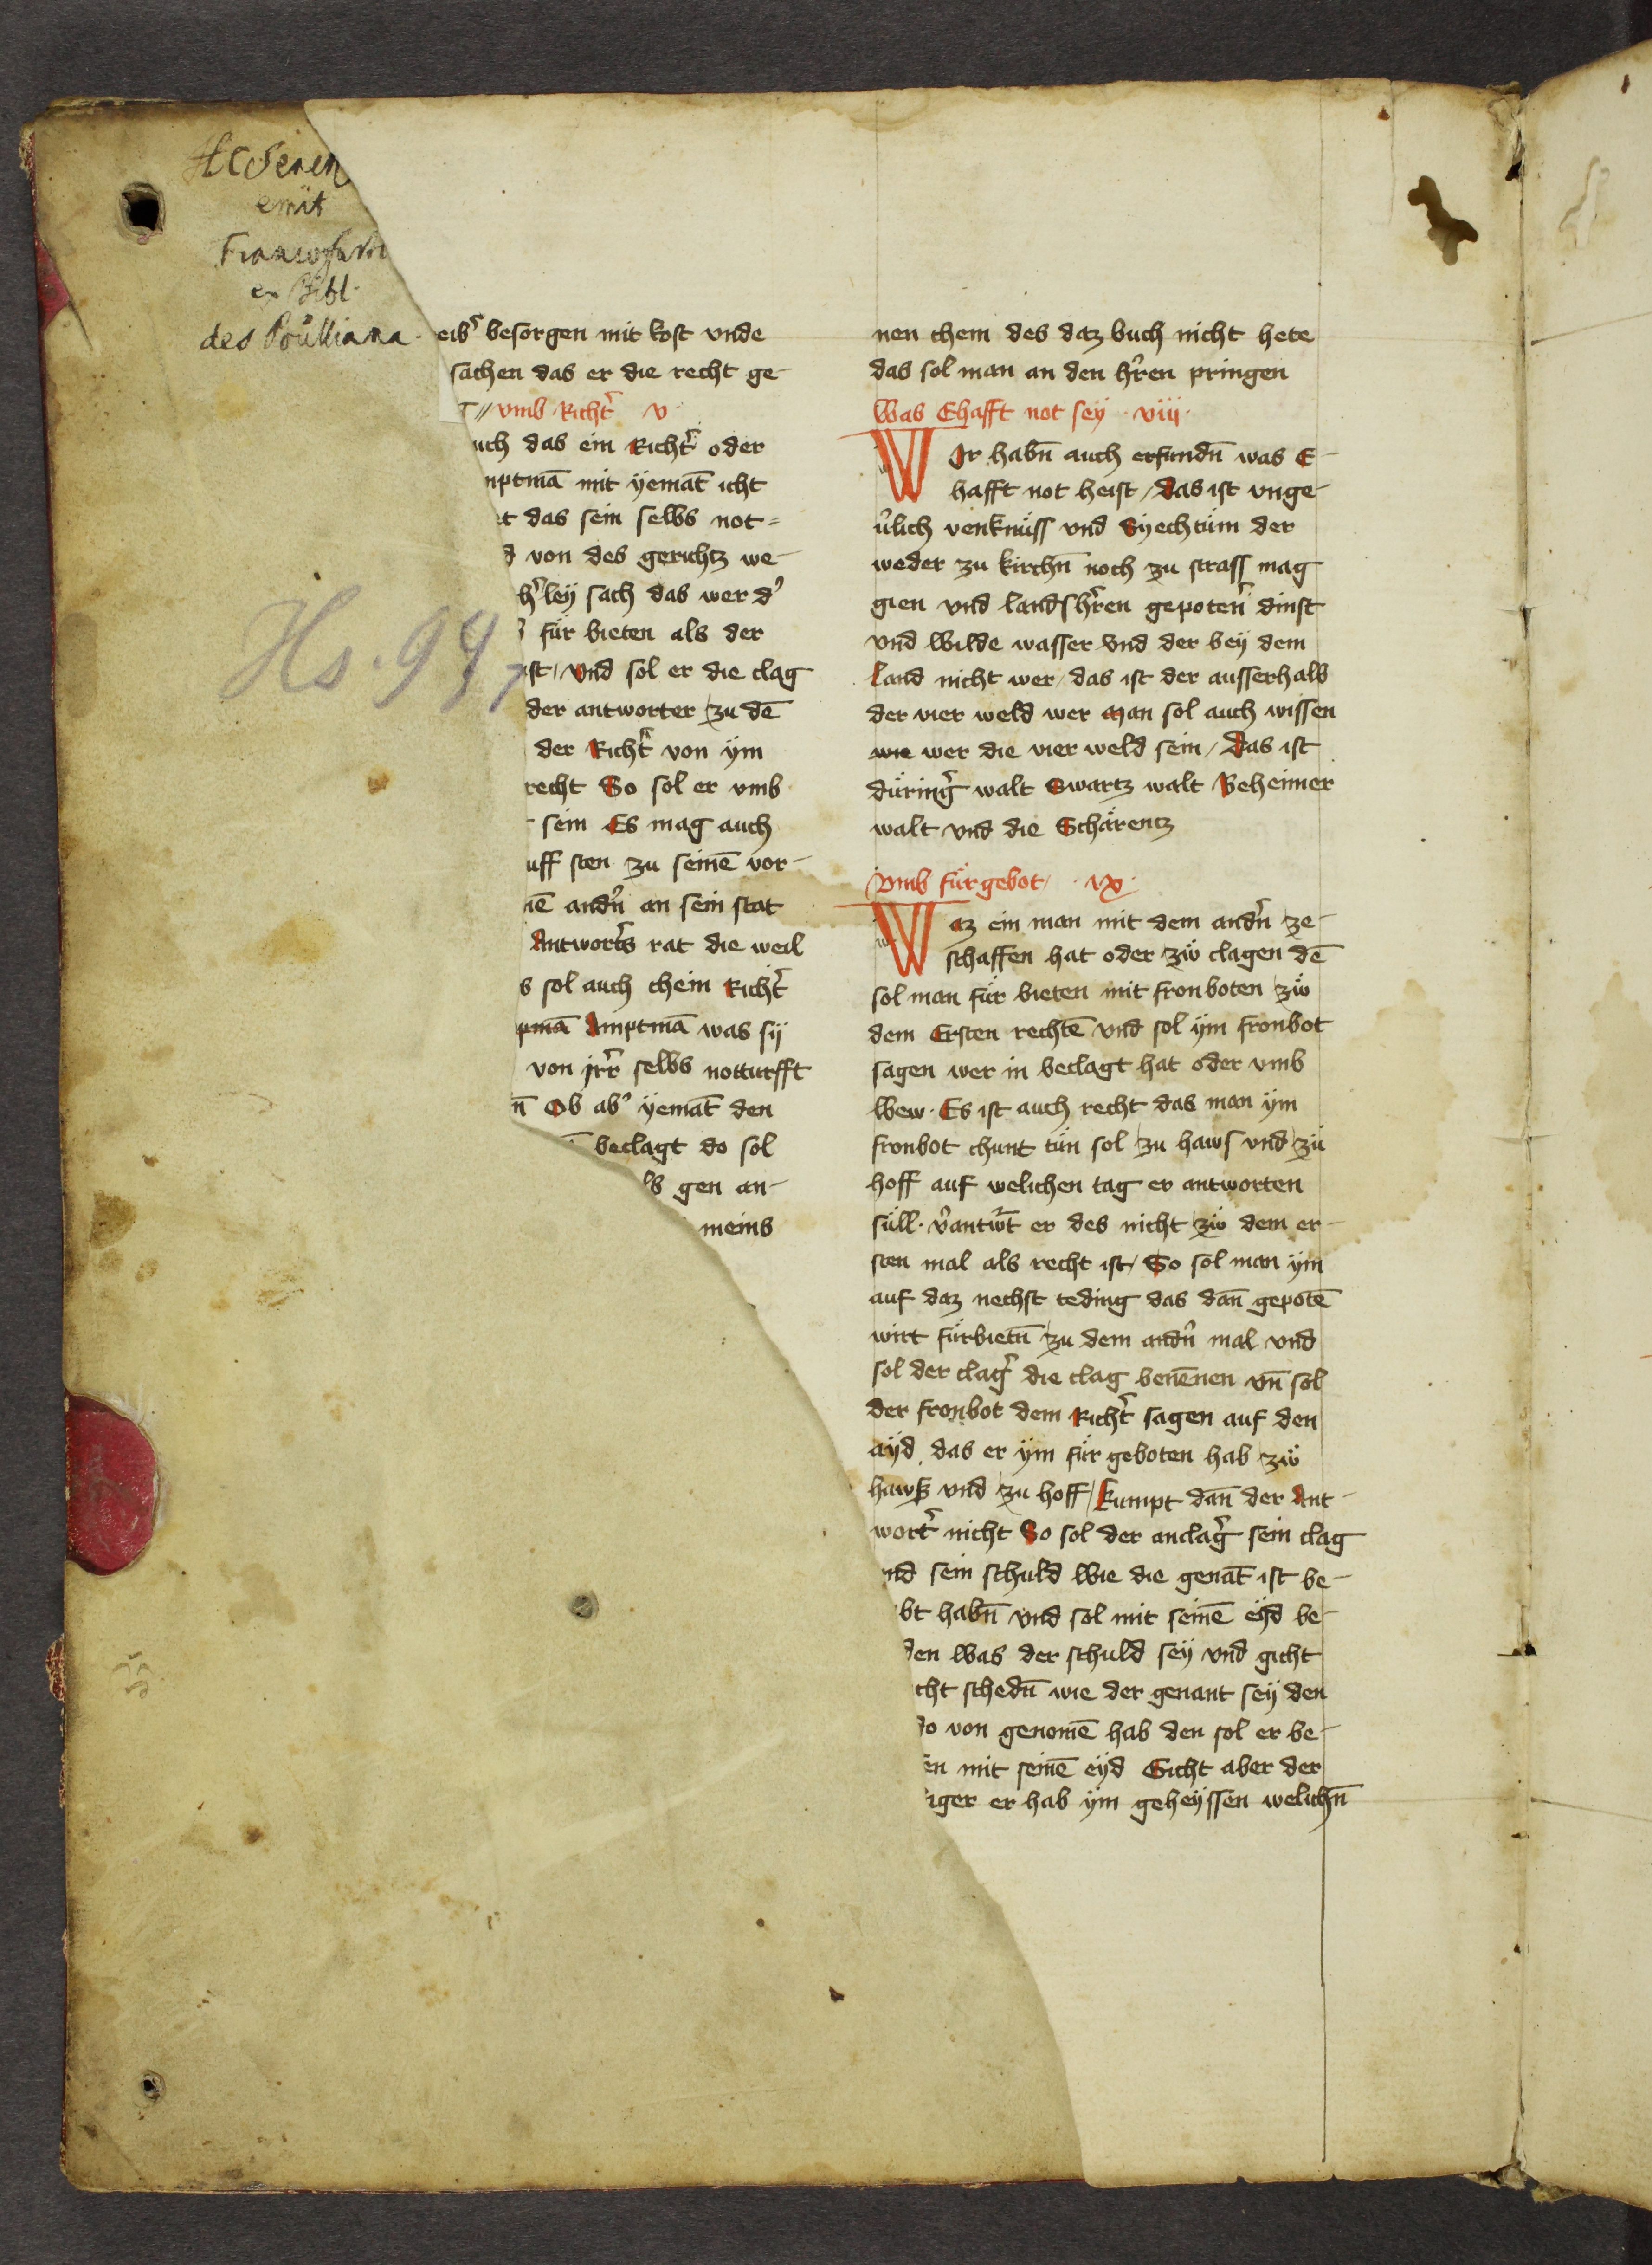 emit
ex Bibl.
Hs. 94
eibʾ besorgen mit kost vnde
sachen das er die recht ge-
vmb Richtʾ v
uch das ein Richtʾ oder
mptmā mit yemāt icht
et das sein selbs not=
von des gerichtz we-
hʾley sach das wer dʾ
für bieten als der
ist / vnd sol er die clag
der antworter zu dē
der Richtʾ von ÿm
recht So sol er vmb
sein Es mag auch
uff sten zu seinē vor-
nē andʾn an sein stat
Antwortʾs rat die weil
s sol auch chein Richtʾ
pmā Amptmā was sÿ
von irʾr selbs notturfft
n̄ Ob abʾ ÿemāt den
beclagt do sol
gen an-
meins
nen chem des daz buch nicht hete
das sol man an den hʾren pringen
Was Ehafft not seÿ · viii ·
WIr habn̄ auch erfundn̄ was E-
hafft not heist / das ist unge-
vʾlich venknüss vnd Syechtüm der
weder zu kirchn̄ noch zu strass mag
gien vnd landshʾren gepotenʾ dinst
vnd wilde wasser vnd der beÿ dem
land nicht wer / das ist der ausserhalb
der vier weld wer Man sol auch wissen
wie wer die vier weld sein / Das ist
düringʾ walt Swartz walt Beheimer
walt vnd die Schärentz
Vmb fürgebot / · ix ·
Waz ein man mit dem andʾn ze-
schaffen hat oder zw̄ clagen dē
sol man für bieten mit fronboten zw̄
dem Ersten rechtē vnd sol ÿm fronbot
sagen wer in beclagt hat oder vmb
wew · Es ist auch recht das man ÿm
fronbot chunt tün sol zu haws vnd zü
hoff auf welichen tag er antworten
süll · vʾantwʾt er des nicht zw̄ dem er-
sten mal als recht ist / So sol man ÿm
auf daz nechst teding das dan̄ gepotē
wirt fürbietn̄ zu dem andʾn mal vnd
sol der clagʾ die clag benēnen vn̄ sol
der fronbot dem Richtʾ sagen auf den
aÿd das er ÿm für geboten hab zw̄
hawß vnd zu hoff / kumpt dan̄ der Ant-
wortʾ nicht So sol der anclagʾ sein clag
nd sein schuld wie die genāt ist be-
bt habn̄ vnd sol mit seinē eÿd be-
den was der schuld seÿ vnd gicht
cht schedn̄ wie der genant seÿ den
do von genomē hab den sol er be-
en mit seinē eÿd Gicht aber der
iger er hab ÿm geheÿssen welichn̄